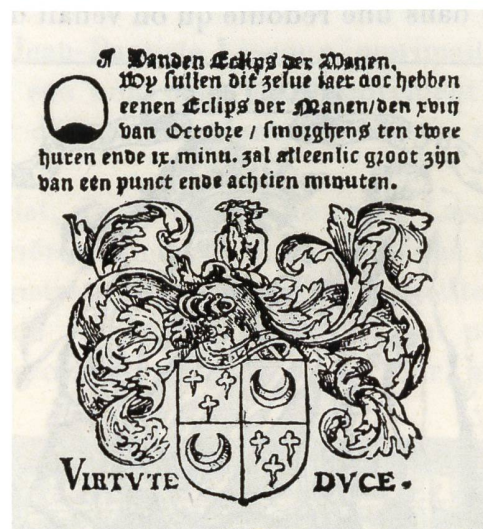 ¶ Vanden Eclips der Manen.
Wy sullen dit zelue iaer ooc hebben
eenen Eclips der Manen/den xviij
van Octobre / smorghens ten twee
huren ende ix. minu. zal alleenlic groot zijn
van een punct ende achtien minuten.
VIRTVTE DVCE.